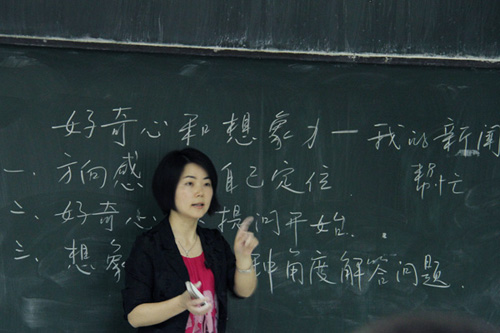 好奇心和想象力—我的新闻
帮忙
一、方向感 自己定位
二、好奇心 提问开始.
三、想象 种角度解答问题.